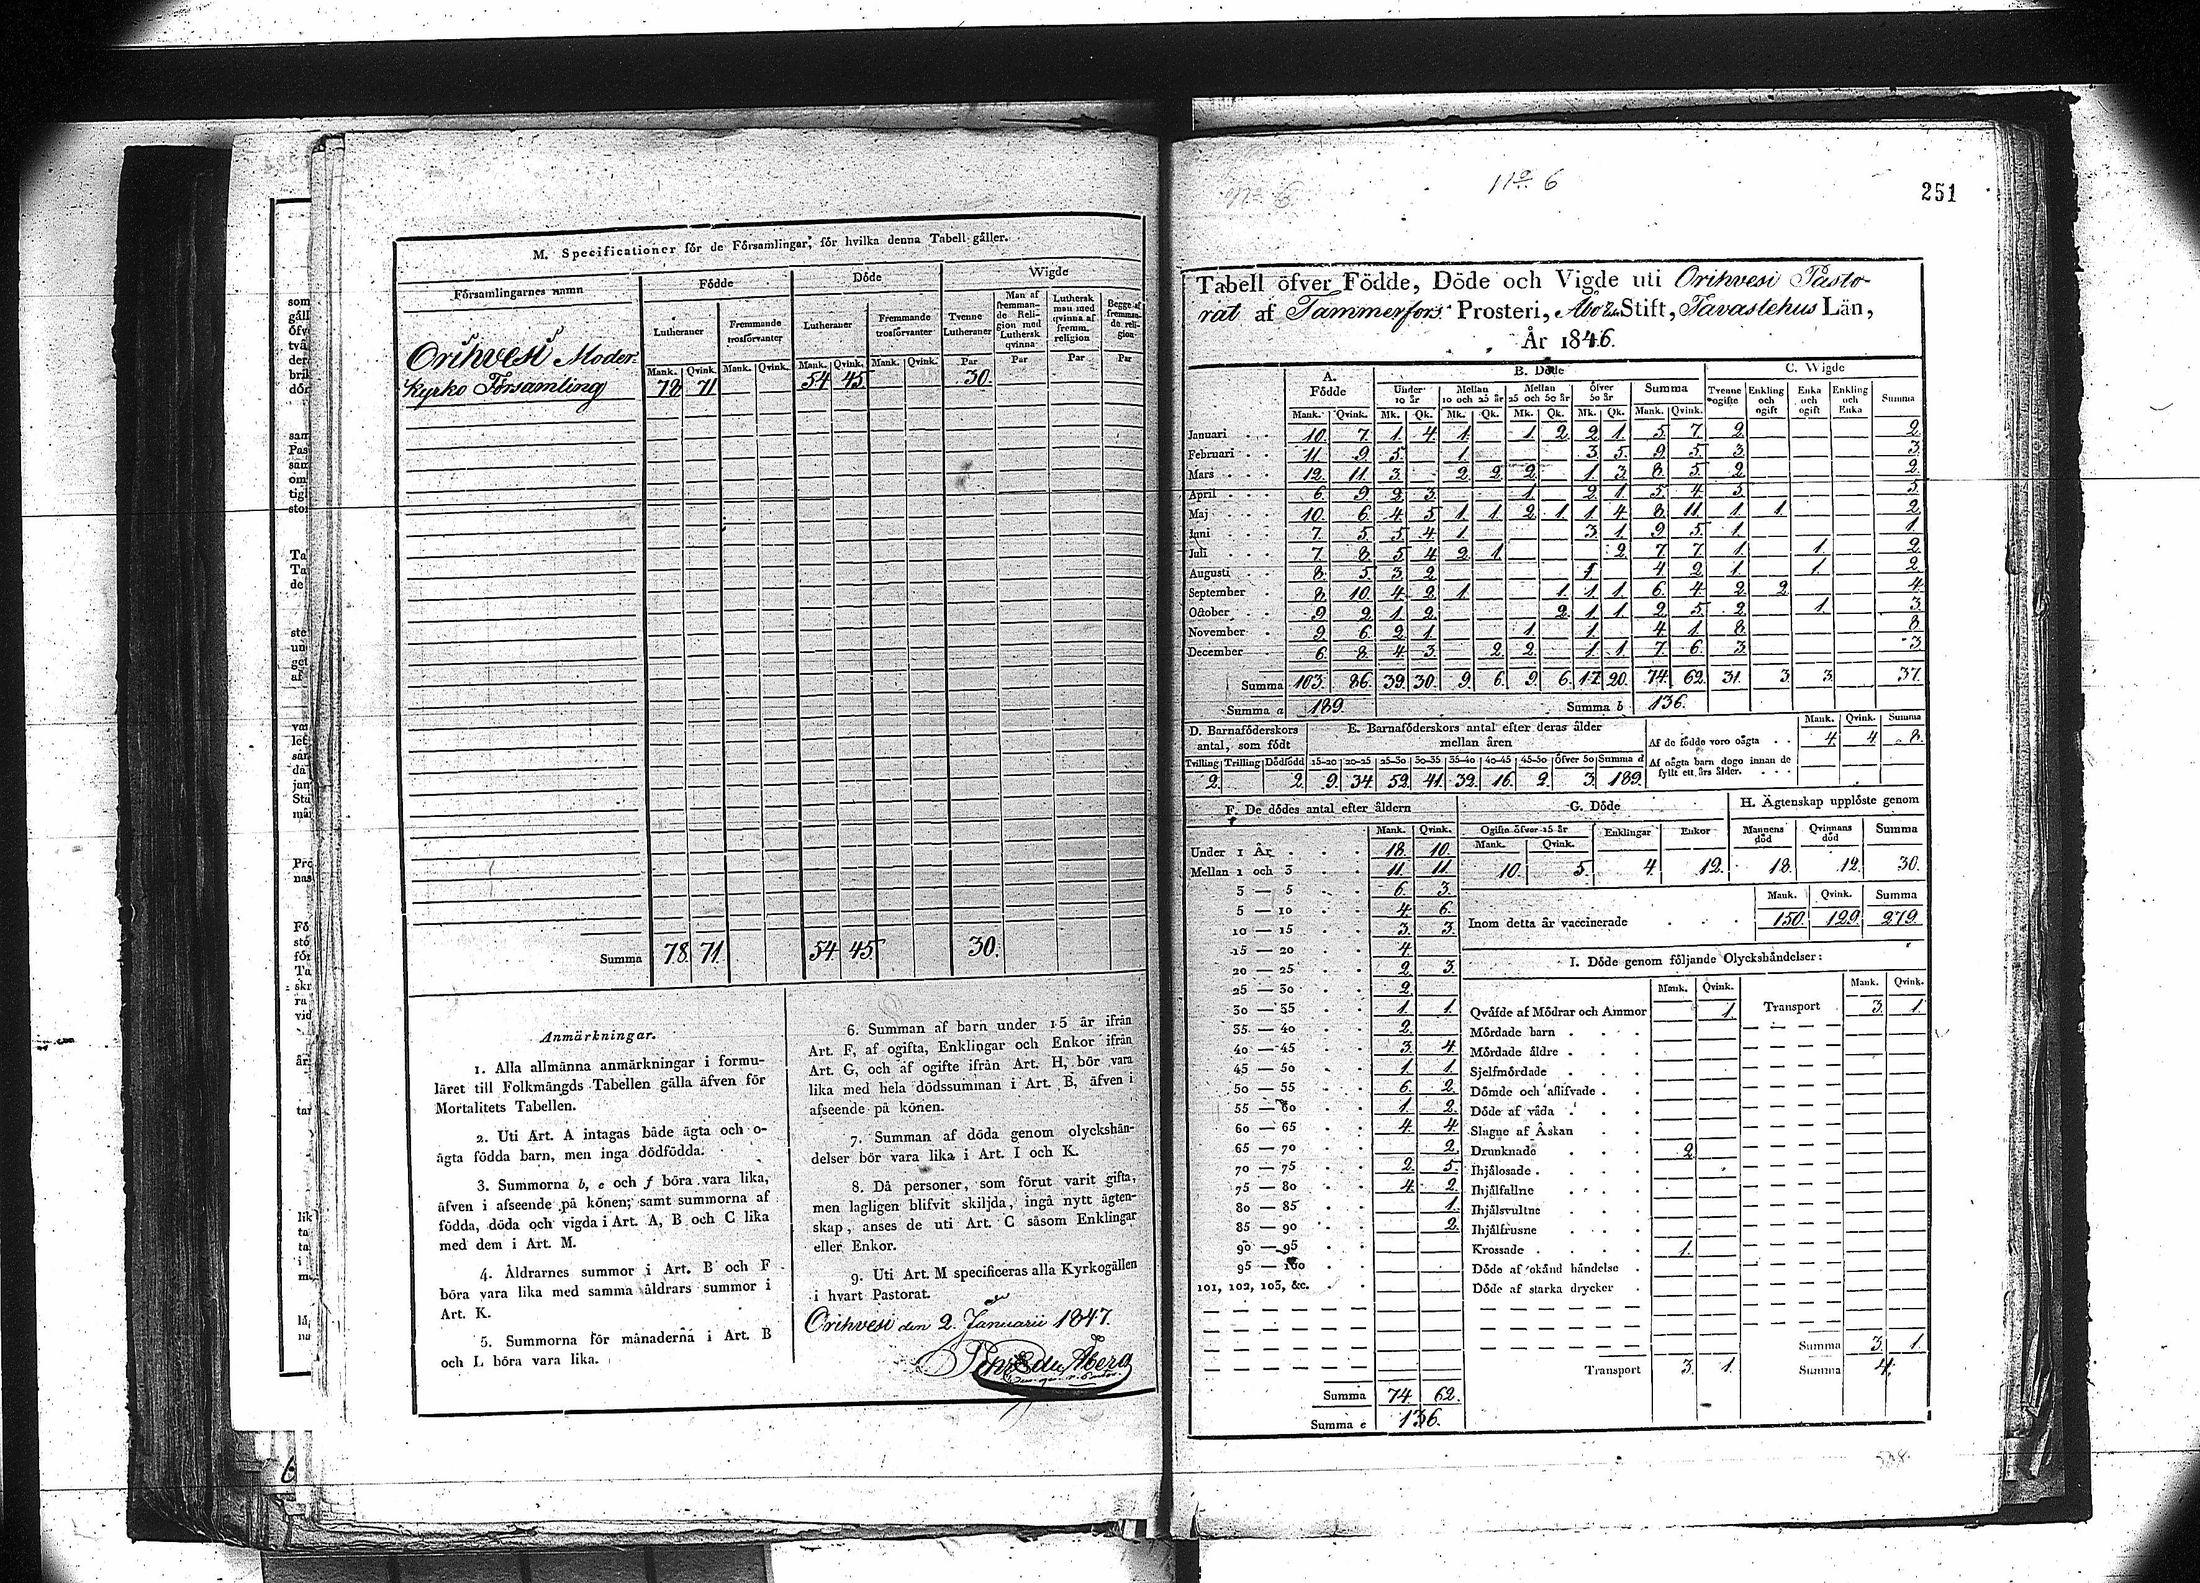 M. Specificationer för de Församlingar, för hvilka denna Tabell gäller.
Församlingarnes namn
Födde
Döde
Wigde
Lutheraner
Fremmande trosförvanter
Lutheraner
Fremmande trosförvanter
Tvenne Lutheraner
Man af fremmande Religion med Luthersk qvinna
Luthersk man med qvinna af fremm. religion
Begge af fremmande religion
Mank. Qvink. Mank. Qvink. Mank. Qvink. Mank. Qvink. Par Par Par Par
Orihvesi Moder-
Kyrko Församling 78 71 54 45 30.
Summa 78 71. 54 45 30.
Anmärkningar.
1. Alla allmänna anmärkningar i formu-
läret till Folkmängds Tabellen gälla äfven för
Mortalitets Tabellen.
2. Uti Art. A intagas både ägta och o-
ägta födda barn, men inga dödfödda.
3. Summorna b, e och f böra vara lika,
äfven i afseende på könen; samt summorna af
födda, döda och vigda i Art. A, B och C lika
med dem i Art. M.
4. Åldrarnes summor i Art. B och F
böra vara lika med samma åldrars summor i
Art. K.
5. Summorna för månaderna i Art. B
och L böra vara lika.
6. Summan af barn under 15 år ifrån
Art. F, af ogifta, Enklingar och Enkor ifrån
Art. G, och af ogifte ifrån Art. H, bör vara
lika med hela dödssumman i Art. B, äfven i
afseende på könen.
7. Summan af döda genom olyckshän-
delser bör vara lika i Art. I och K.
8. Då personer, som förut varit gifta,
men lagligen blifvit skiljda, ingå nytt ägten-
skap, anses de uti Art. C såsom Enklingar
eller Enkor.
9. Uti Art. M specificeras alla Kyrkogällen
i hvart Pastorat.
Orihvesi den 2. Januarii 1847.
Åberg
No 6
251
Tabell öfver Födde, Döde och Vigde uti Orihvesi Pasto-
rat af Tammerfors Prosteri, Åbo Stift, Tavastehus Län,
År 1846.
A. Födde
B. Döde
C. Wigde
Under 10 år
Mellan 10 och 25 år
Mellan 25 och 50 år
Öfver 50 år
Summa
Tvenne ogifte
Enkling och ogift
Enka och ogift
Enkling och Enka
Summa
Mank. Qvink. Mk. Qk. Mk. Qk. Mk. Qk. Mk. Qk. Mank. Qvink.
Januari 10. 7. 1. 4. 1. 1. 2. 2. 1. 5. 7. 2. 2.
Februari 11. 9. 5. 1. 3. 5. 9. 5. 3. 3.
Mars 12. 11. 3. 2. 2. 2. 1. 3. 8. 5. 2. 2.
April 6. 9. 2. 3. 1. 2. 1. 5. 4. 5. 5.
Maj 10. 6. 4. 5. 1. 1. 2. 1. 1. 4. 8. 11. 1. 1. 2.
Juni 7. 5. 5. 4. 1. 3. 1. 9. 5. 1. 1.
Juli 7. 8. 5. 4. 2. 1. 2. 7. 7. 1. 1. 2.
Augusti 8. 5. 3. 2. 1. 4. 2. 1. 1. 2.
September 8. 10. 4. 2. 1. 1. 1. 1. 6. 4. 2. 2. 4.
October 9. 2. 1. 2. 2. 1. 1. 2. 5. 2. 1. 3.
November 9. 6. 2. 1. 1. 1. 4. 1. 8. 8.
December 6. 8. 4. 3. 2. 2. 1. 1. 7. 6. 3. 3.
Summa 103. 86. 39. 30. 9. 6. 9. 6. 17. 20. 74. 62. 31. 3. 3. 37.
Summa a 189. Summa b 136.
D. Barnaföderskors antal, som födt
Tvilling Trilling Dödfödd
2. 2.
E. Barnaföderskors antal efter deras ålder mellan åren
15-20 20-25 25-30 30-35 35-40 40-45 45-50 öfver 50 Summa d
9. 34. 52. 41. 32. 16. 2. 3. 189.
Mank. Qvink. Summa
Af de födde voro oägta 4. 4. 8.
Af oägta barn dogo innan de
fyllt ett års ålder.
F. De dödes antal efter åldern
Mank. Qvink.
Under 1 År 18. 10.
Mellan 1 och 3 11. 11.
3 — 5 6. 3.
5 — 10 4. 6.
10 — 15 3. 3.
15 — 20 4.
20 — 25 2. 3.
25 — 30 2.
30 — 35 1. 1.
35 — 40 2.
40 — 45 3. 4.
45 — 50 1. 1.
50 — 55 6. 2.
55 — 60 1. 2.
60 — 65 4. 4.
65 — 70 2.
70 — 75 2. 5.
75 — 80 4. 2.
80 — 85 1.
85 — 90 2.
90 — 95
95 — 100
101, 102, 103, &c.
Summa 74. 62.
Summa e 136.
G. Döde
Ogifte öfver 15 år
Enklingar
Enkor
Mank. Qvink.
10. 5. 4. 12.
H. Ägtenskap upplöste genom
Mannens död
Qvinnans död
Summa
18. 12. 30.
Mank. Qvink. Summa
Inom detta år vaccinerade 150. 129. 279.
I. Döde genom följande Olyckshändelser:
Mank. Qvink. Mank. Qvink.
Qväfde af Mödrar och Ammor 1. Transport 3. 1.
Mördade barn
Mördade äldre
Sjelfmördade
Dömde och aflifvade
Döde af våda
Slagne af Åskan
Drunknade 2.
Ihjälosade
Ihjälfallne
Ihjälsvultne
Ihjälfrusne
Krossade 1.
Döde af okänd händelse
Döde af starka drycker
Summa 3. 1.
Transport 3. 1. Summa 4.